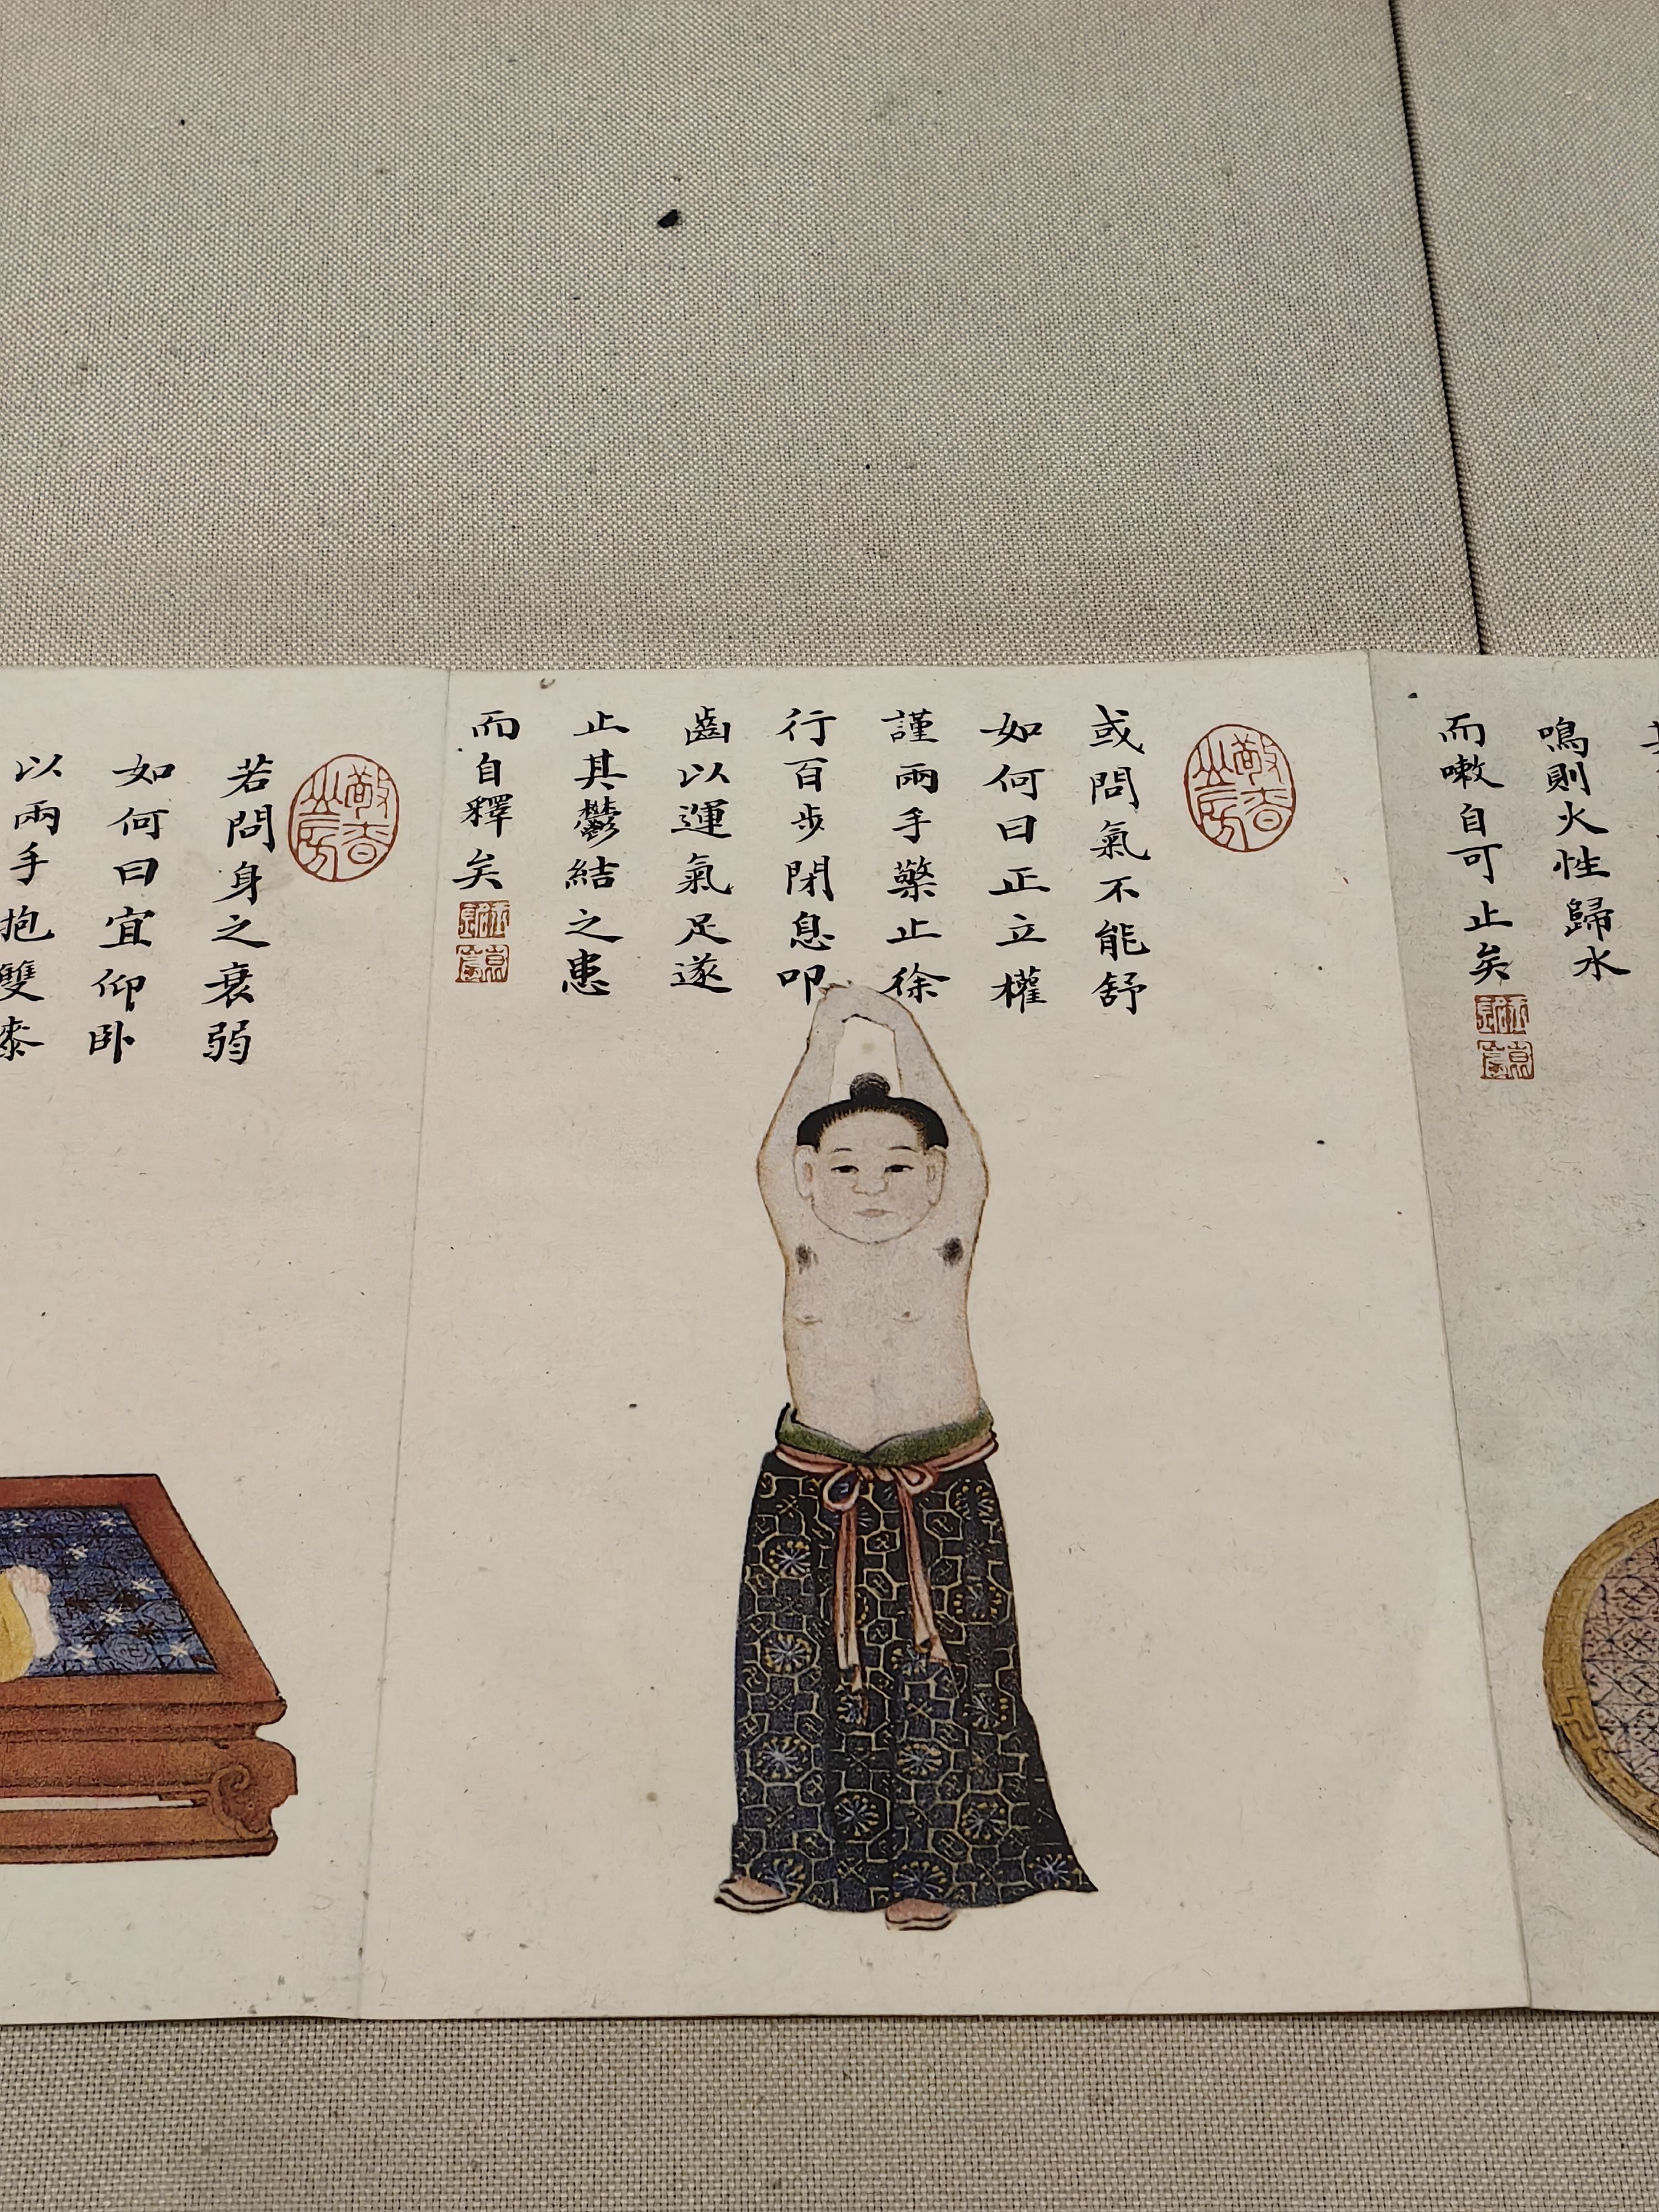 而嗽自可止矣
鳴則火性歸水
或問氣不能舒
如何曰正立權
謹兩手擎止徐
行百步閉息叩
齒以運氣足遂
止其鬱結之患
而自釋矣
若問身之衰弱
如何曰宜仰卧
以兩手抱雙